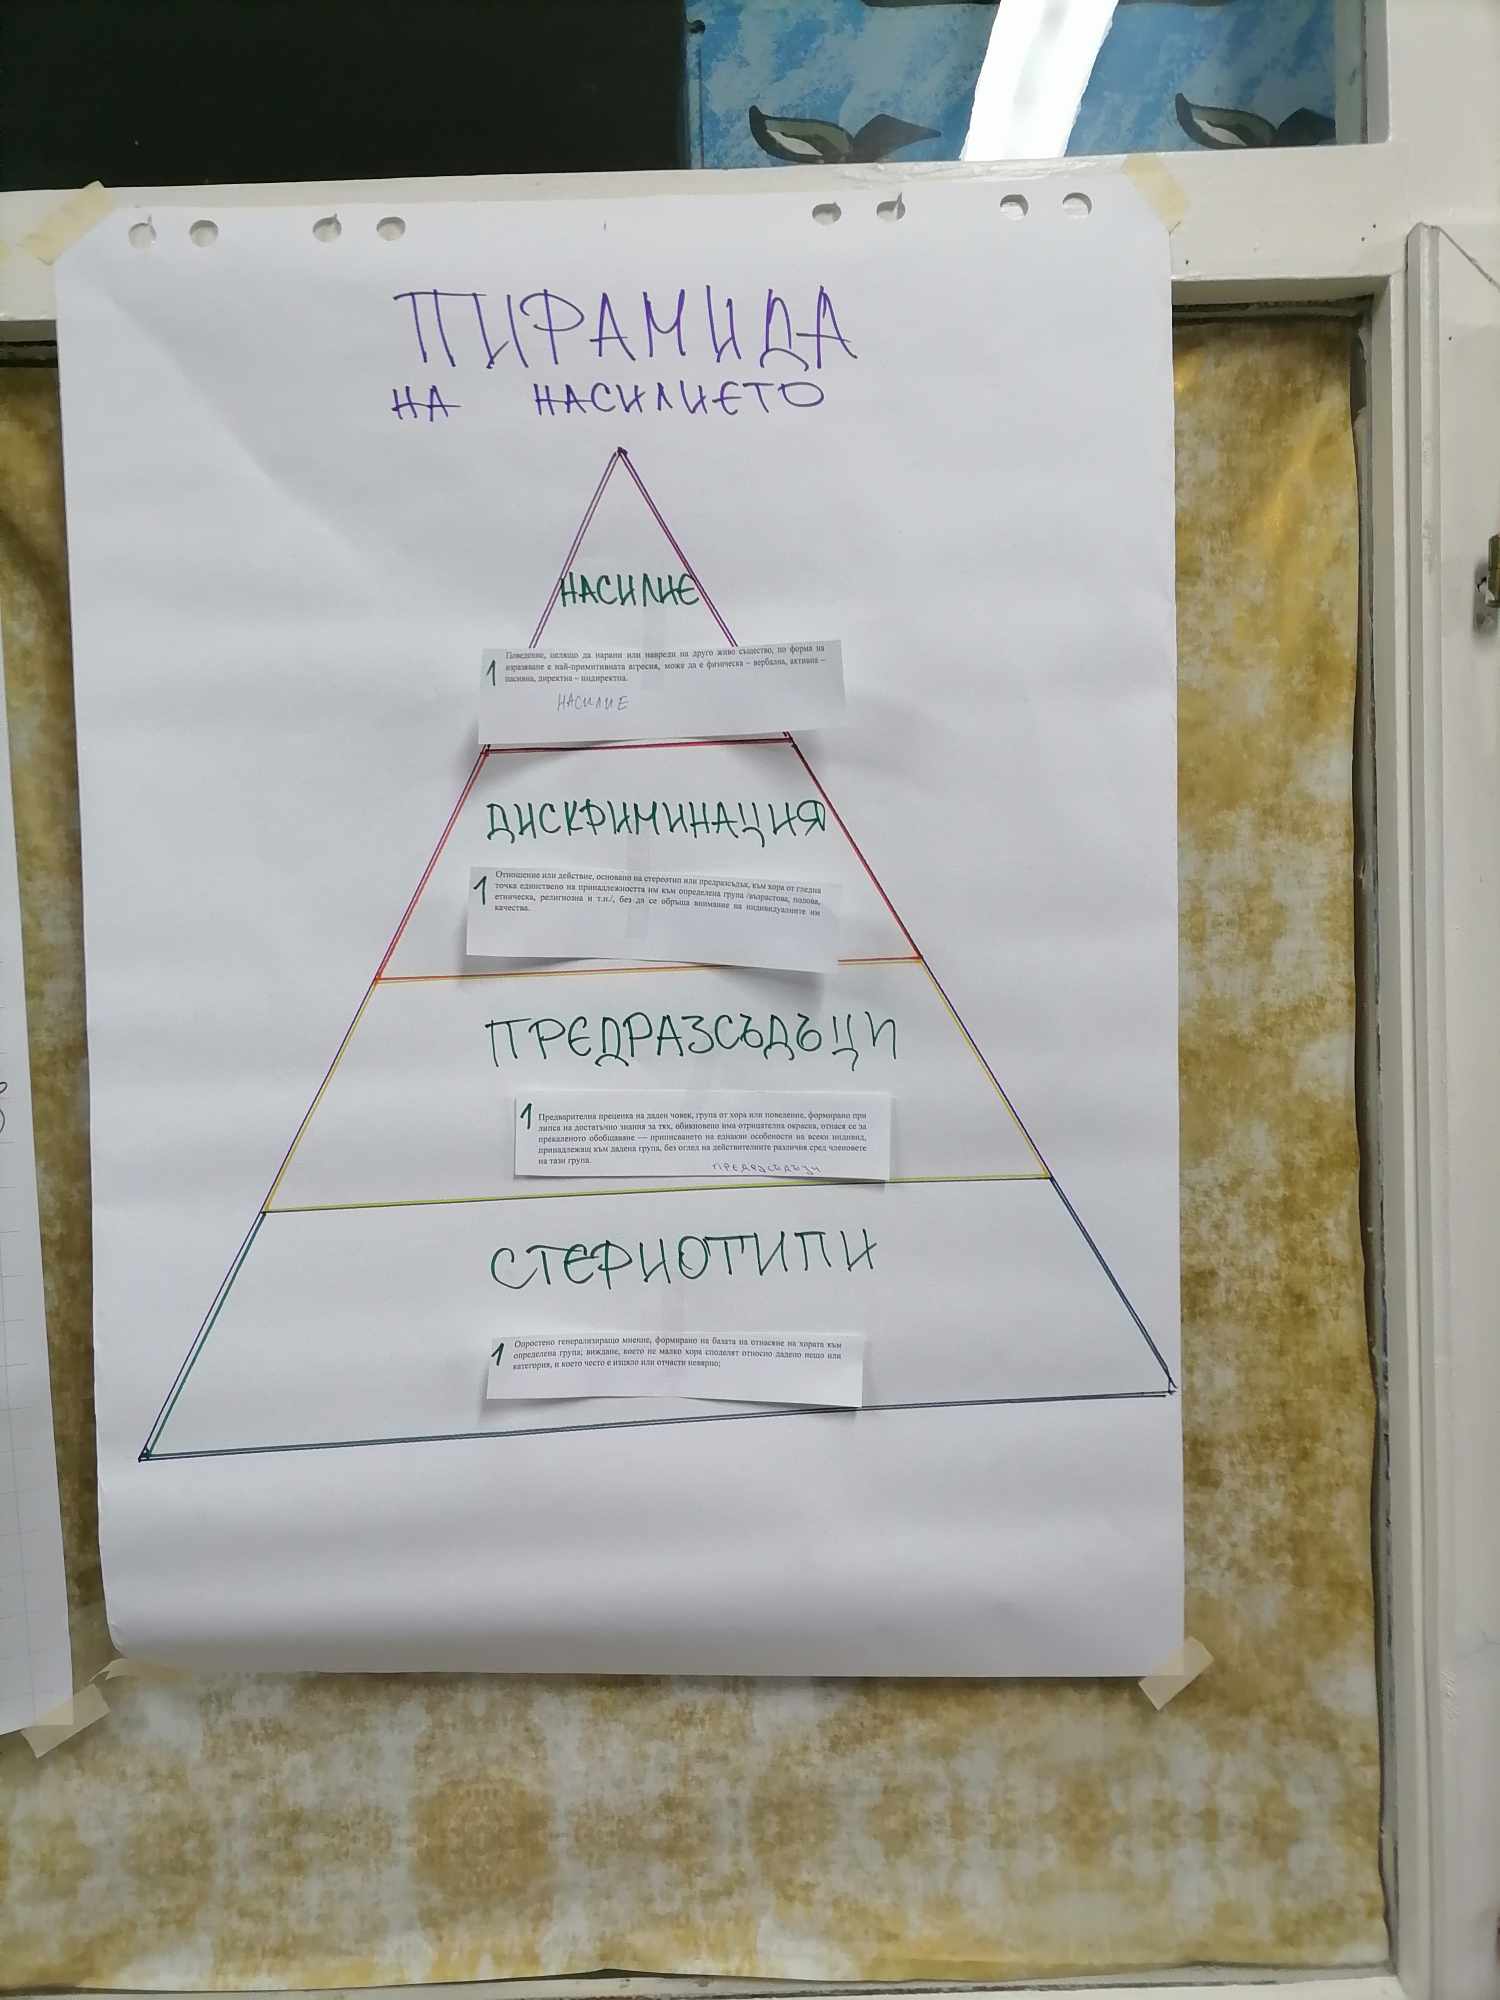 ПИРАМИДА
НА НАСИЛИЕТО
НАСИЛИЕ
1 Поведение, целящо да нарани или навреди на друго живо същество, по форма на
изразяване е най-примитивната агресия, може да е физическа – вербална, активна –
пасивна, директна – индиректна.
НАСИЛИЕ
ДИСКРИМИНАЦИЯ
1 Отношение или действие, основано на стереотип или предразсъдък, към хора от гледна
точка единствено на принадлежността им към определена група /възрастова, полова,
етническа, религиозна и т.н./, без да се обръща внимание на индивидуалните им
качества.
ПРЕДРАЗСЪДЪЦИ
1 Предварителна преценка на даден човек, група от хора или поведение, формирано при
липса на достатъчно знания за тях, обикновено има отрицателна окраска, отнася се за
прекаленото обобщаване — приписването на еднакви особености на всеки индивид,
принадлежащ към дадена група, без оглед на действителните различия сред членовете
на тази група.
СТЕРИОТИПИ
1 Опростено генерализиращо мнение, формирано на базата на отнасяне на хората към
определена група; виждане, което не малко хора споделят относно дадено нещо или
категория, и което често е изцяло или отчасти невярно;